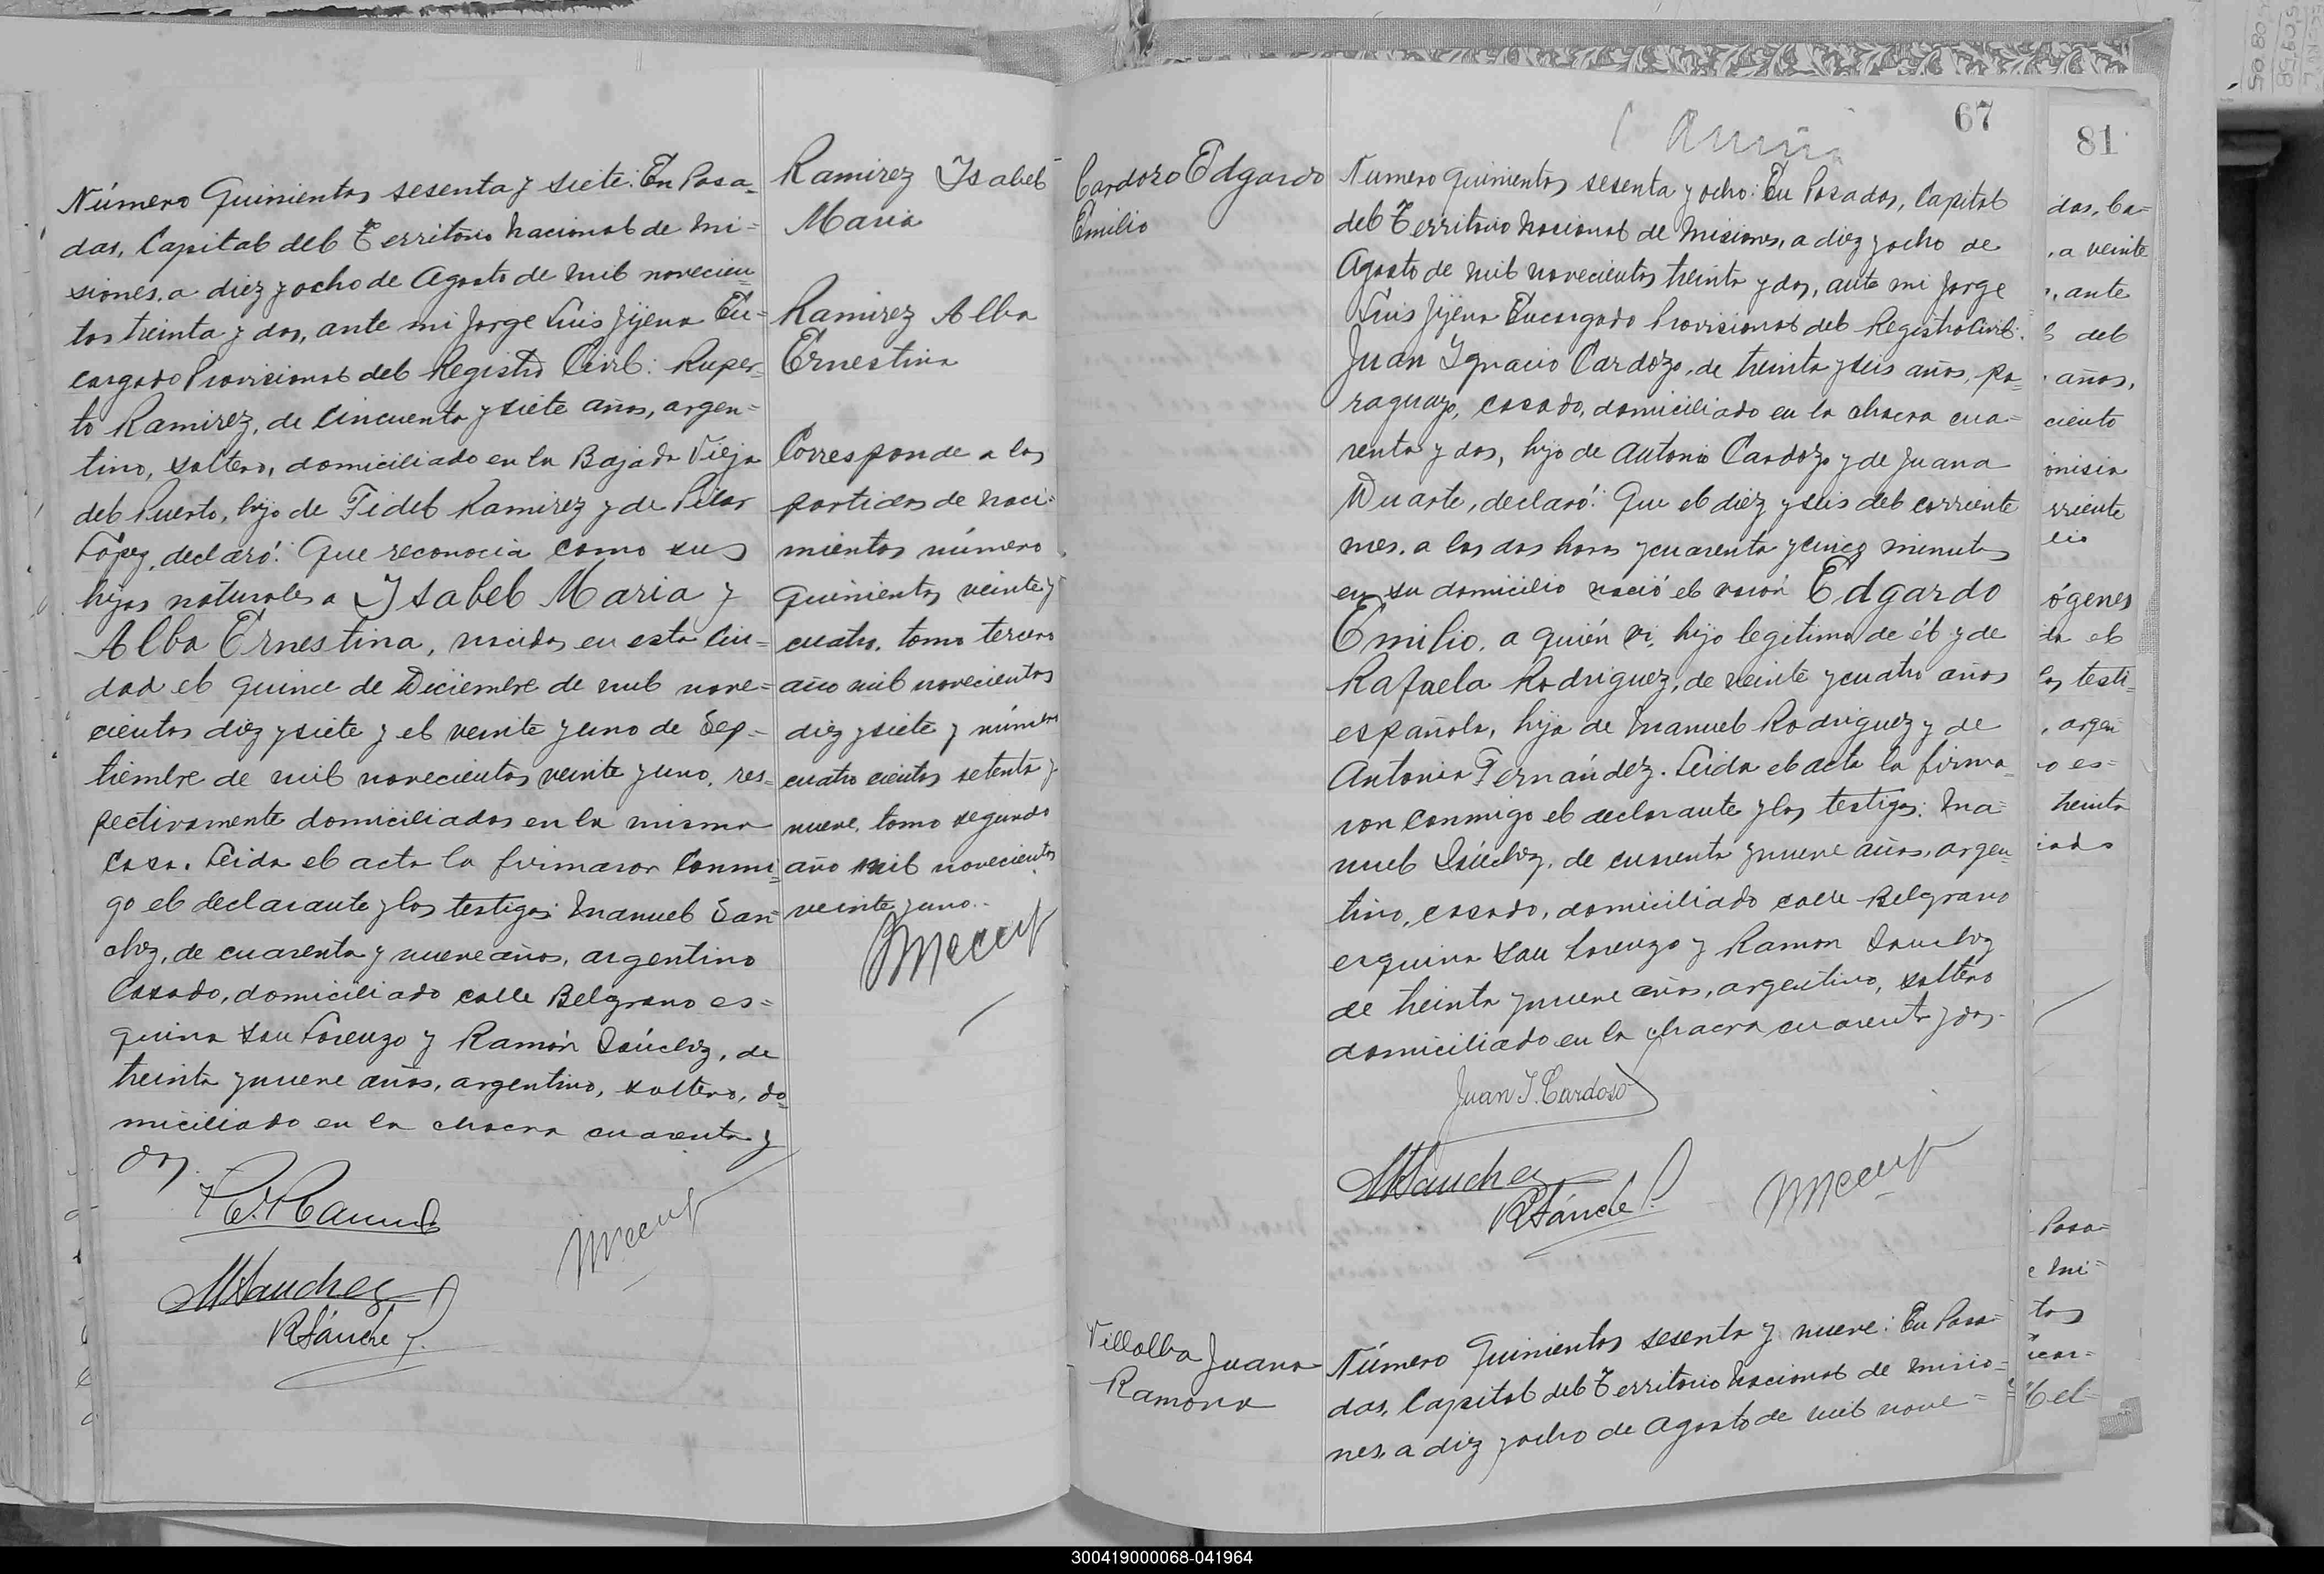 Número Quinientos sesenta y siete: En Posa=
das, Capital del Territorio Nacional de Mi=
siones, a diez y ocho de Agosto de mil novecien=
tos treinta y dos, ante mi Jorge Luis Jijena En=
cargado Provisional del Registro Civil: Ruper=
to Ramirez, de cincuenta y siete años, argen=
tino, soltero, domiciliado en la Bajada Vieja
del Puerto, hijo de Fidel Ramirez y de Pilar
López, declaró: Que reconocia como sus
hijas naturales a Isabel Maria y
Alba Ernestina, nacidas en esta Ciu=
dad el quince de Diciembre de mil nove=
cientos diez y siete y el veinte y uno de Sep=
tiembre de mil novecientos veinte y uno, res=
pectivamente domiciliadas en la misma
casa. Leida el acta la firmaron Conmi=
go el declarante y los testigos: Manuel San=
chez, de cuarenta y nueve años, argentino
Casado, domiciliado calle Belgrano es=
quina San Lorenzo y Ramón Sánchez, de
treinta y nueve años, argentino, soltero, do=
miciliado en la chacra cuarenta y
dos.
MSanchez
RSánchez
Ramirez Isabel
Maria
Ramirez Alba
Ernestina
Corresponde a las
partidas de naci=
mientos número
quinientos veinte y
cuatro, tomo tercero
año mil novecientos
diez y siete y número
cuatro cientos setenta y
nueve, tomo segundo
año mil novecientos
veinte y uno.
Cardozo Edgardo
Emilio
67
Numero quinientos sesenta y ocho: En Posadas, Capital
del Territorio Nacional de Misiones, a diez y ocho de
Agosto de mil novecientos treinta y dos, ante mi Jorge
Luis Jijena Encargado Provisional del Registro Civil:
Juan Ignacio Cardozo, de treinta y seis años, pa=
raguayo, casado, domiciliado en la chacra cua=
renta y dos, hijo de Antonio Cardozo y de Juana
Duarte, declaró: Que el diez y seis del corriente
mes, a las dos horas y cuarenta y cinco minutos
en su domicilio nació el varón Edgardo
Emilio, a quién vi, hijo legitimo de él y de
Rafaela Rodriguez, de veinte y cuatro años
española, hija de Manuel Rodriguez y de
Antonia Fernández. Leida el acta la firma=
ron conmigo el declarante y los testigos: Ma=
nuel Sánchez, de cuarenta y nueve años, argen=
tino, casado, domiciliado calle Belgrano
esquina San Lorenzo y Ramon Sanchez
de treinta y nueve años, argentino, soltero
domiciliado en la chacra cuarenta y dos.
Juan I. Cardoso
MSanchez
RSánchez
Villalba Juana
Ramona
Número Quinientos sesenta y nueve: En Posa=
das, Capital del Territorio Nacional de Misio=
nes, a diez y ocho de Agosto de mil nove=
81
das, Ca=
, a veinte
, ante
del
años,
ciento
onisia
rriente
cio
ógenes
da el
los testi=
, argen
o es=
treinta
iado
Posa=
e Mi=
tos
ncar=
el=
300419000068-041964